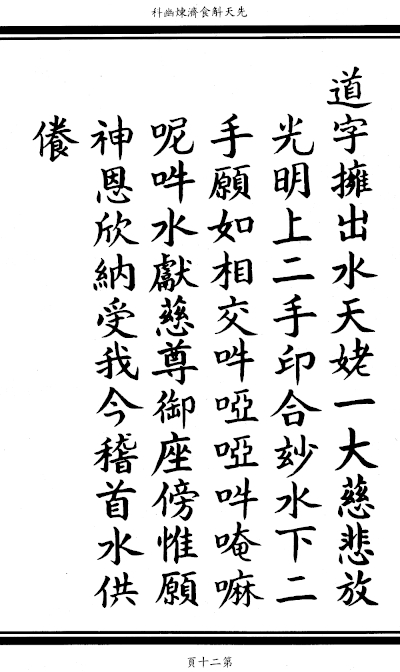 先天斛食濟煉幽科
道字擁出水天姥一大慈悲放
光明上二手印合玅水下二
手願如相交吽啞啞吽唵嘛
呢吽水獻慈尊御座傍惟願
神恩欣納受我今稽首水供
養
第二十頁